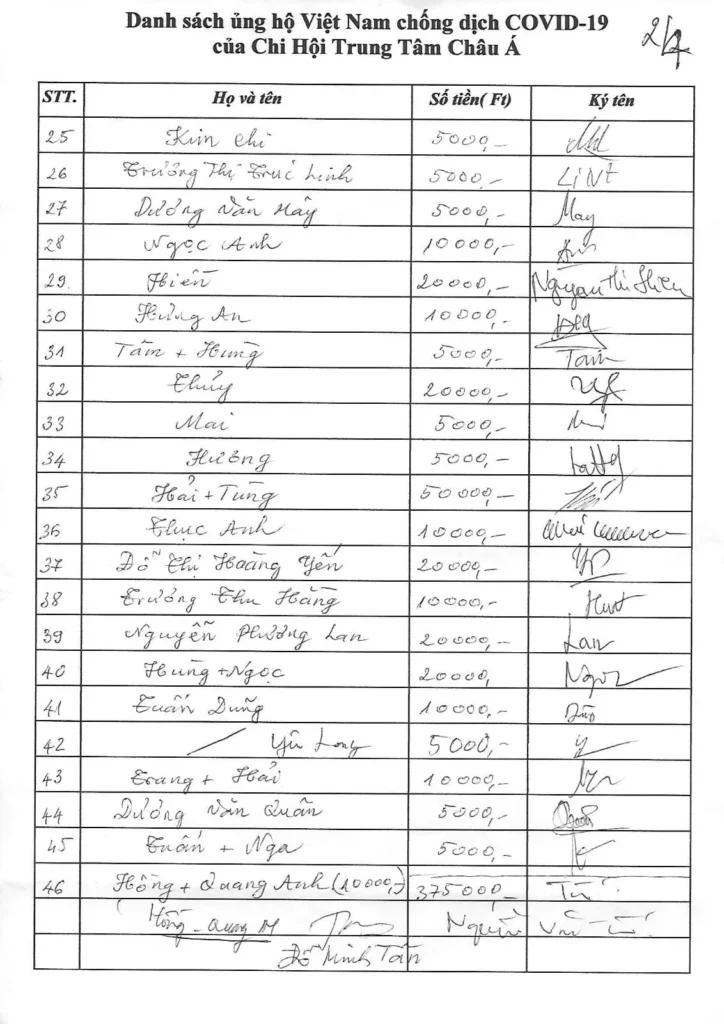 Danh sách ủng hộ Việt Nam chống dịch COVID-19
của Chi Hội Trung Tâm Châu Á
2/4
STT. Họ và tên Số tiền( Ft) Ký tên
25 Kim Chi 5000,-
26 Trương Thị Trúc Linh 5000,- LiNh
27 Dương Văn Mây 5000,- May
28 Ngọc Anh 10000,- Anh
29. Hiền 20000,- Nguyen Thi Hien
30 Hưng An 10000,-
31 Tâm + Hùng 5000,- Tam
32 Thủy 20000,-
33 Mai 5000,-
34 Hương 5000,-
35 Hải + Tùng 50000,-
36 Thục Anh 10000,-
37 Đỗ Thị Hoàng Yến 20000,-
38 Trương Thu Hằng 10000,-
39 Nguyễn Phương Lan 20000,- Lan
40 Hùng + Ngọc 20000, Ngọc
41 Tuấn Dũng 10000,-
42 Yū Long 5000,-
43 Trang + Hải 10000,-
44 Dương Văn Quân 5000,- Quân
45 Tuấn + Nga 5000,-
46 Hồng + Quang Anh (10000,-) 375000,- Tú
Hồng - Quang A Nguyễn Văn Tú
Đỗ Minh Tân